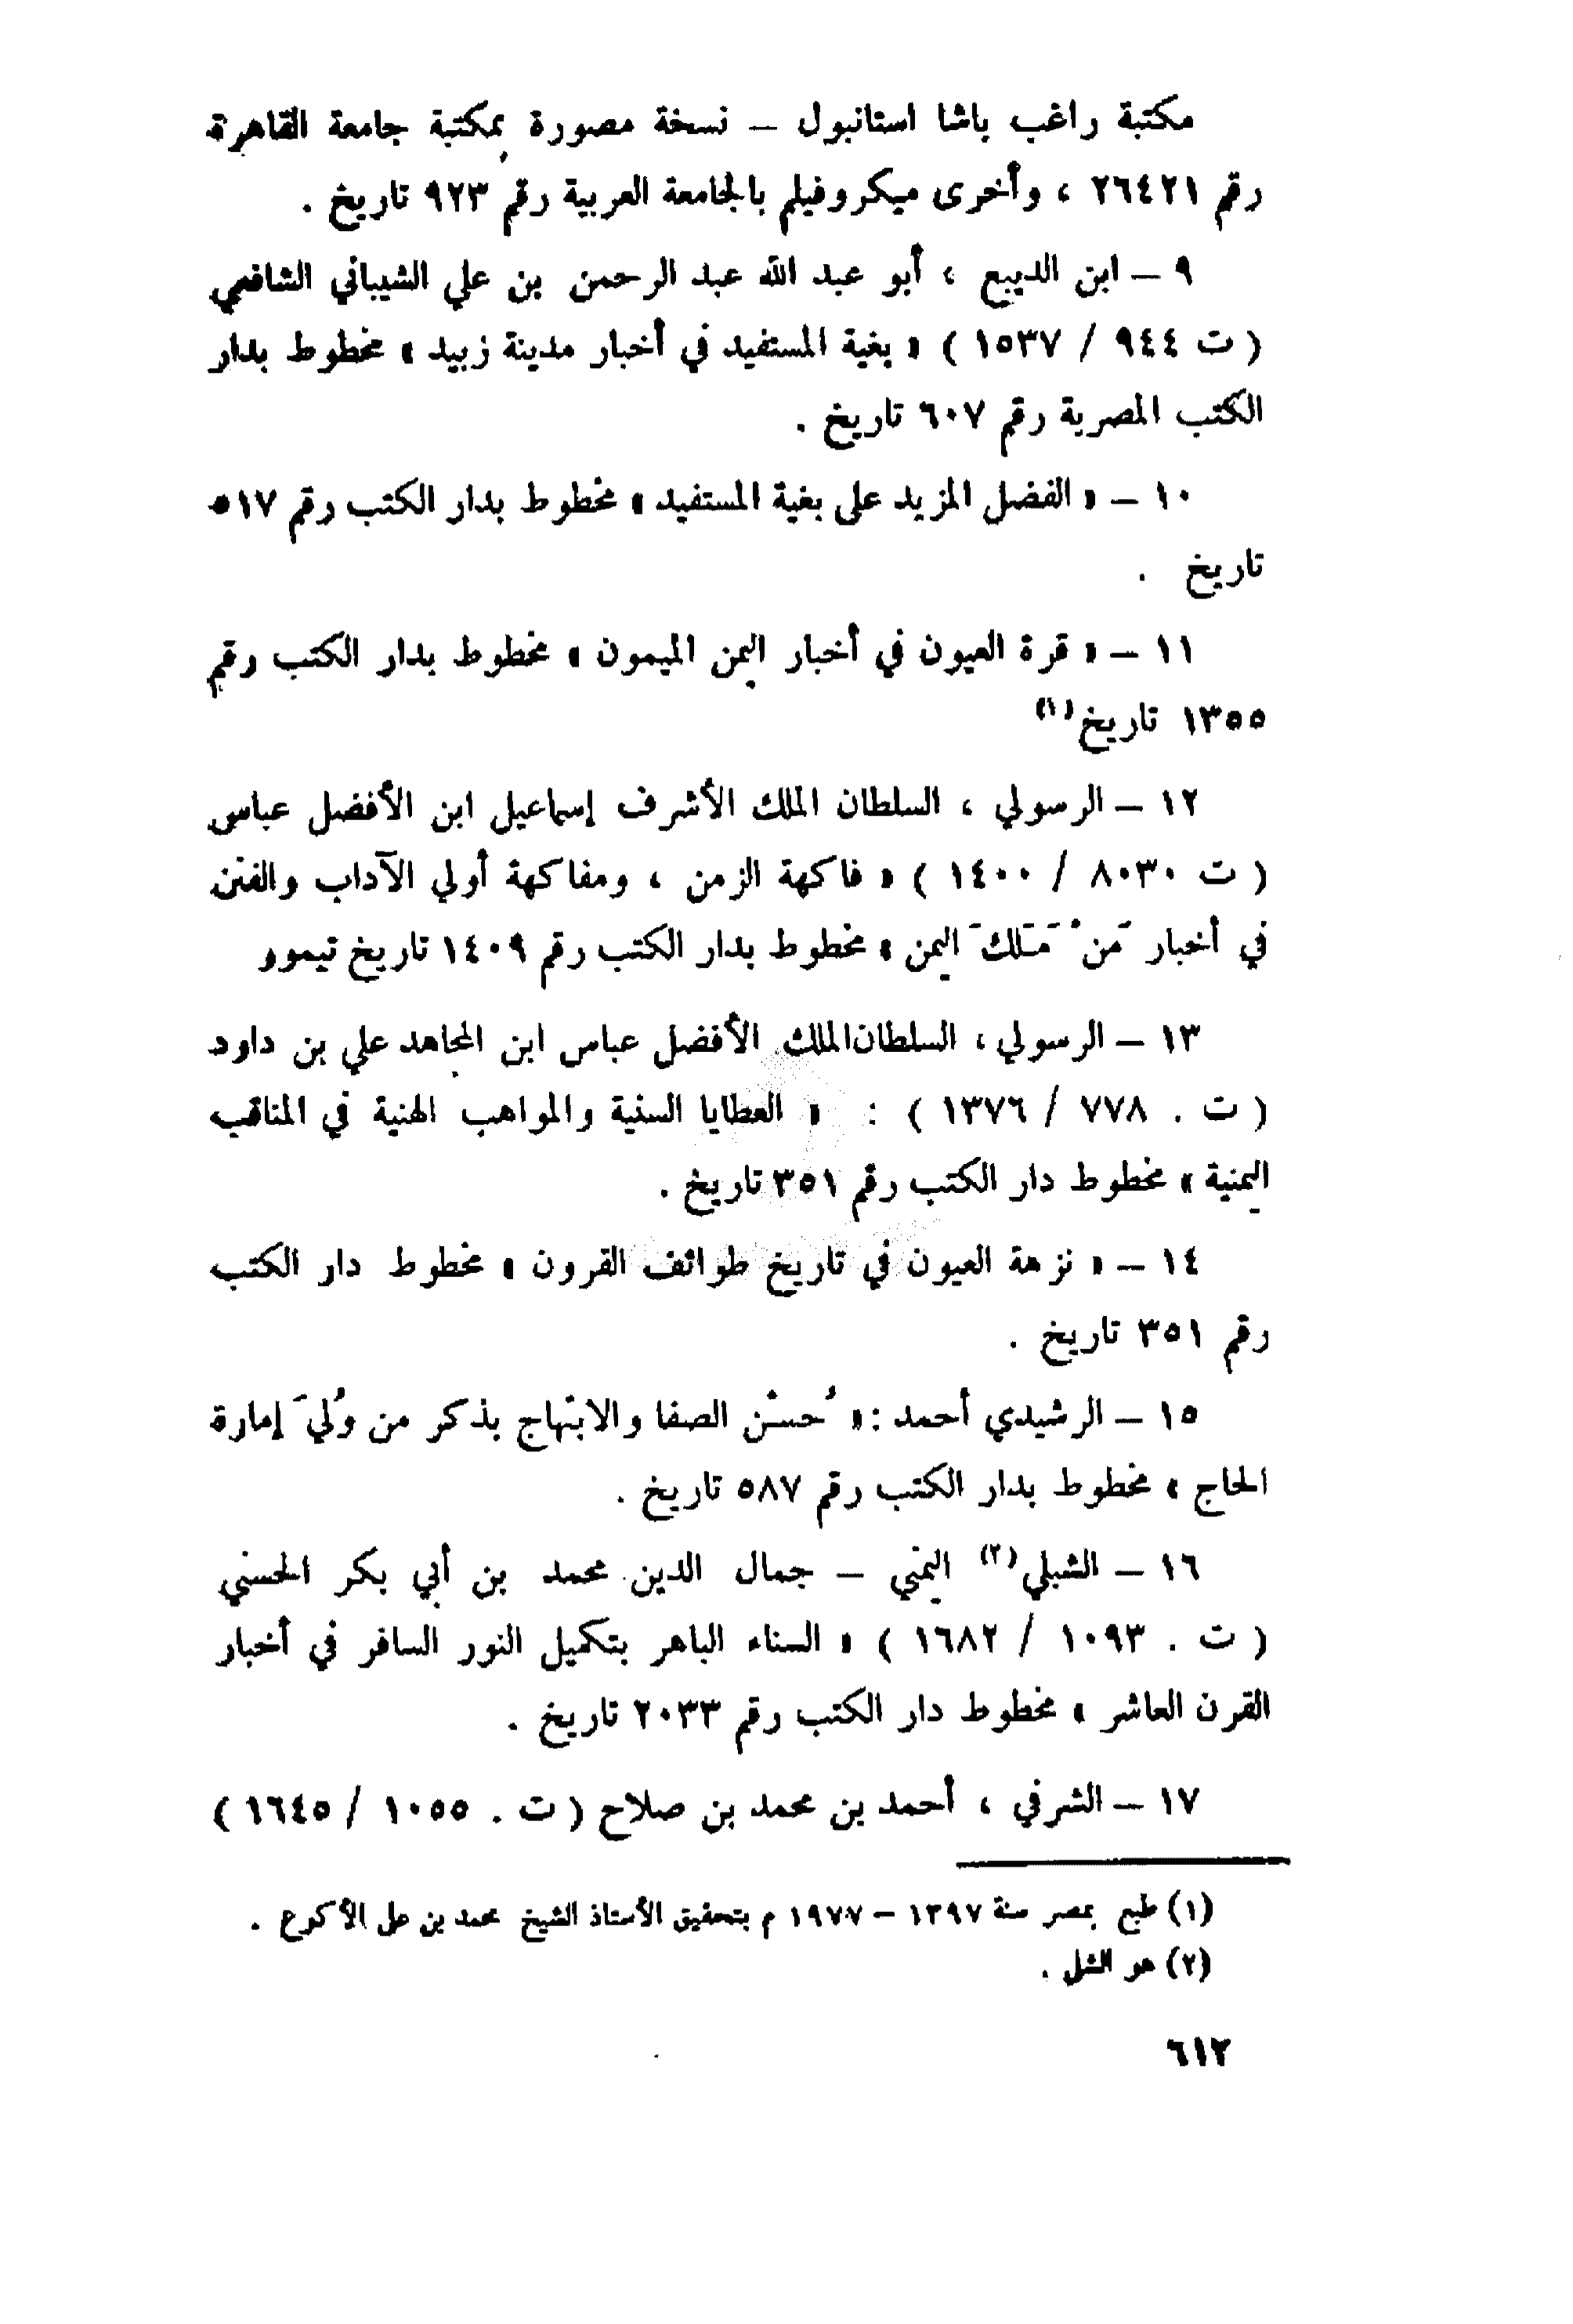 مكتبة راغب باشا استانبول – نسخة مصورة بمكتبة جامعة القاهرة
رقم ٢٦٤٢١ ، وأخرى ميكروفيلم بالجامعة العربية رقم ٩٢٣ تاريخ .
٩ – ابن الديبع ، أبو عبد الله عبد الرحمن بن علي الشيباني الشافعي
( ت ٩٤٤ / ١٥٣٧ ) « بغية المستفيد في أخبار مدينة زبيد » مخطوط بدار
الكتب المصرية رقم ٦٠٧ تاريخ .
١٠ – « الفضل المزيد على بغية المستفيد » مخطوط بدار الكتب رقم ٥١٧
تاريخ .
١١ – « قرة العيون في أخبار اليمن الميمون » مخطوط بدار الكتب رقم
١٣٥٥ تاريخ(١)
١٢ – الرسولي ، السلطان الملك الأشرف إسماعيل ابن الأفضل عباس
( ت ٨٠٣٠ / ١٤٠٠ ) « فاكهة الزمن ، ومفاكهة أولي الآداب والفتن
في أخبار مَنْ مَلَكَ اليمن » مخطوط بدار الكتب رقم ١٤٠٩ تاريخ تيمور
١٣ – الرسولي ، السلطان الملك الأفضل عباس ابن المجاهد علي بن داود
( ت . ٧٧٨ / ١٣٧٦ ) : « العطايا السنية والمواهب الهنية في المناقب
اليمنية » مخطوط دار الكتب رقم ٣٥١ تاريخ .
١٤ – « نزهة العيون في تاريخ طوائف القرون » مخطوط دار الكتب
رقم ٣٥١ تاريخ .
١٥ – الرشيدي أحمد : « حُسْن الصفا والابتهاج بذكر من وُليَ إمارة
الحاج » مخطوط بدار الكتب رقم ٥٨٧ تاريخ .
١٦ – الشبلي(٢) اليمني – جمال الدين محمد بن أبي بكر الحسني
( ت . ١٠٩٣ / ١٦٨٢ ) « السناء الباهر بتكميل النور السافر في أخبار
القرن العاشر » مخطوط دار الكتب رقم ٢٠٣٣ تاريخ .
١٧ – الشرفي ، أحمد بن محمد بن صلاح ( ت . ١٠٥٥ / ١٦٤٥ )
(١) طبع بمصر سنة ١٣٩٧ – ١٩٧٧ م بتحقيق الأستاذ الشيخ محمد بن علي الأكوع .
(٢) هو الشلي .
٦١٢